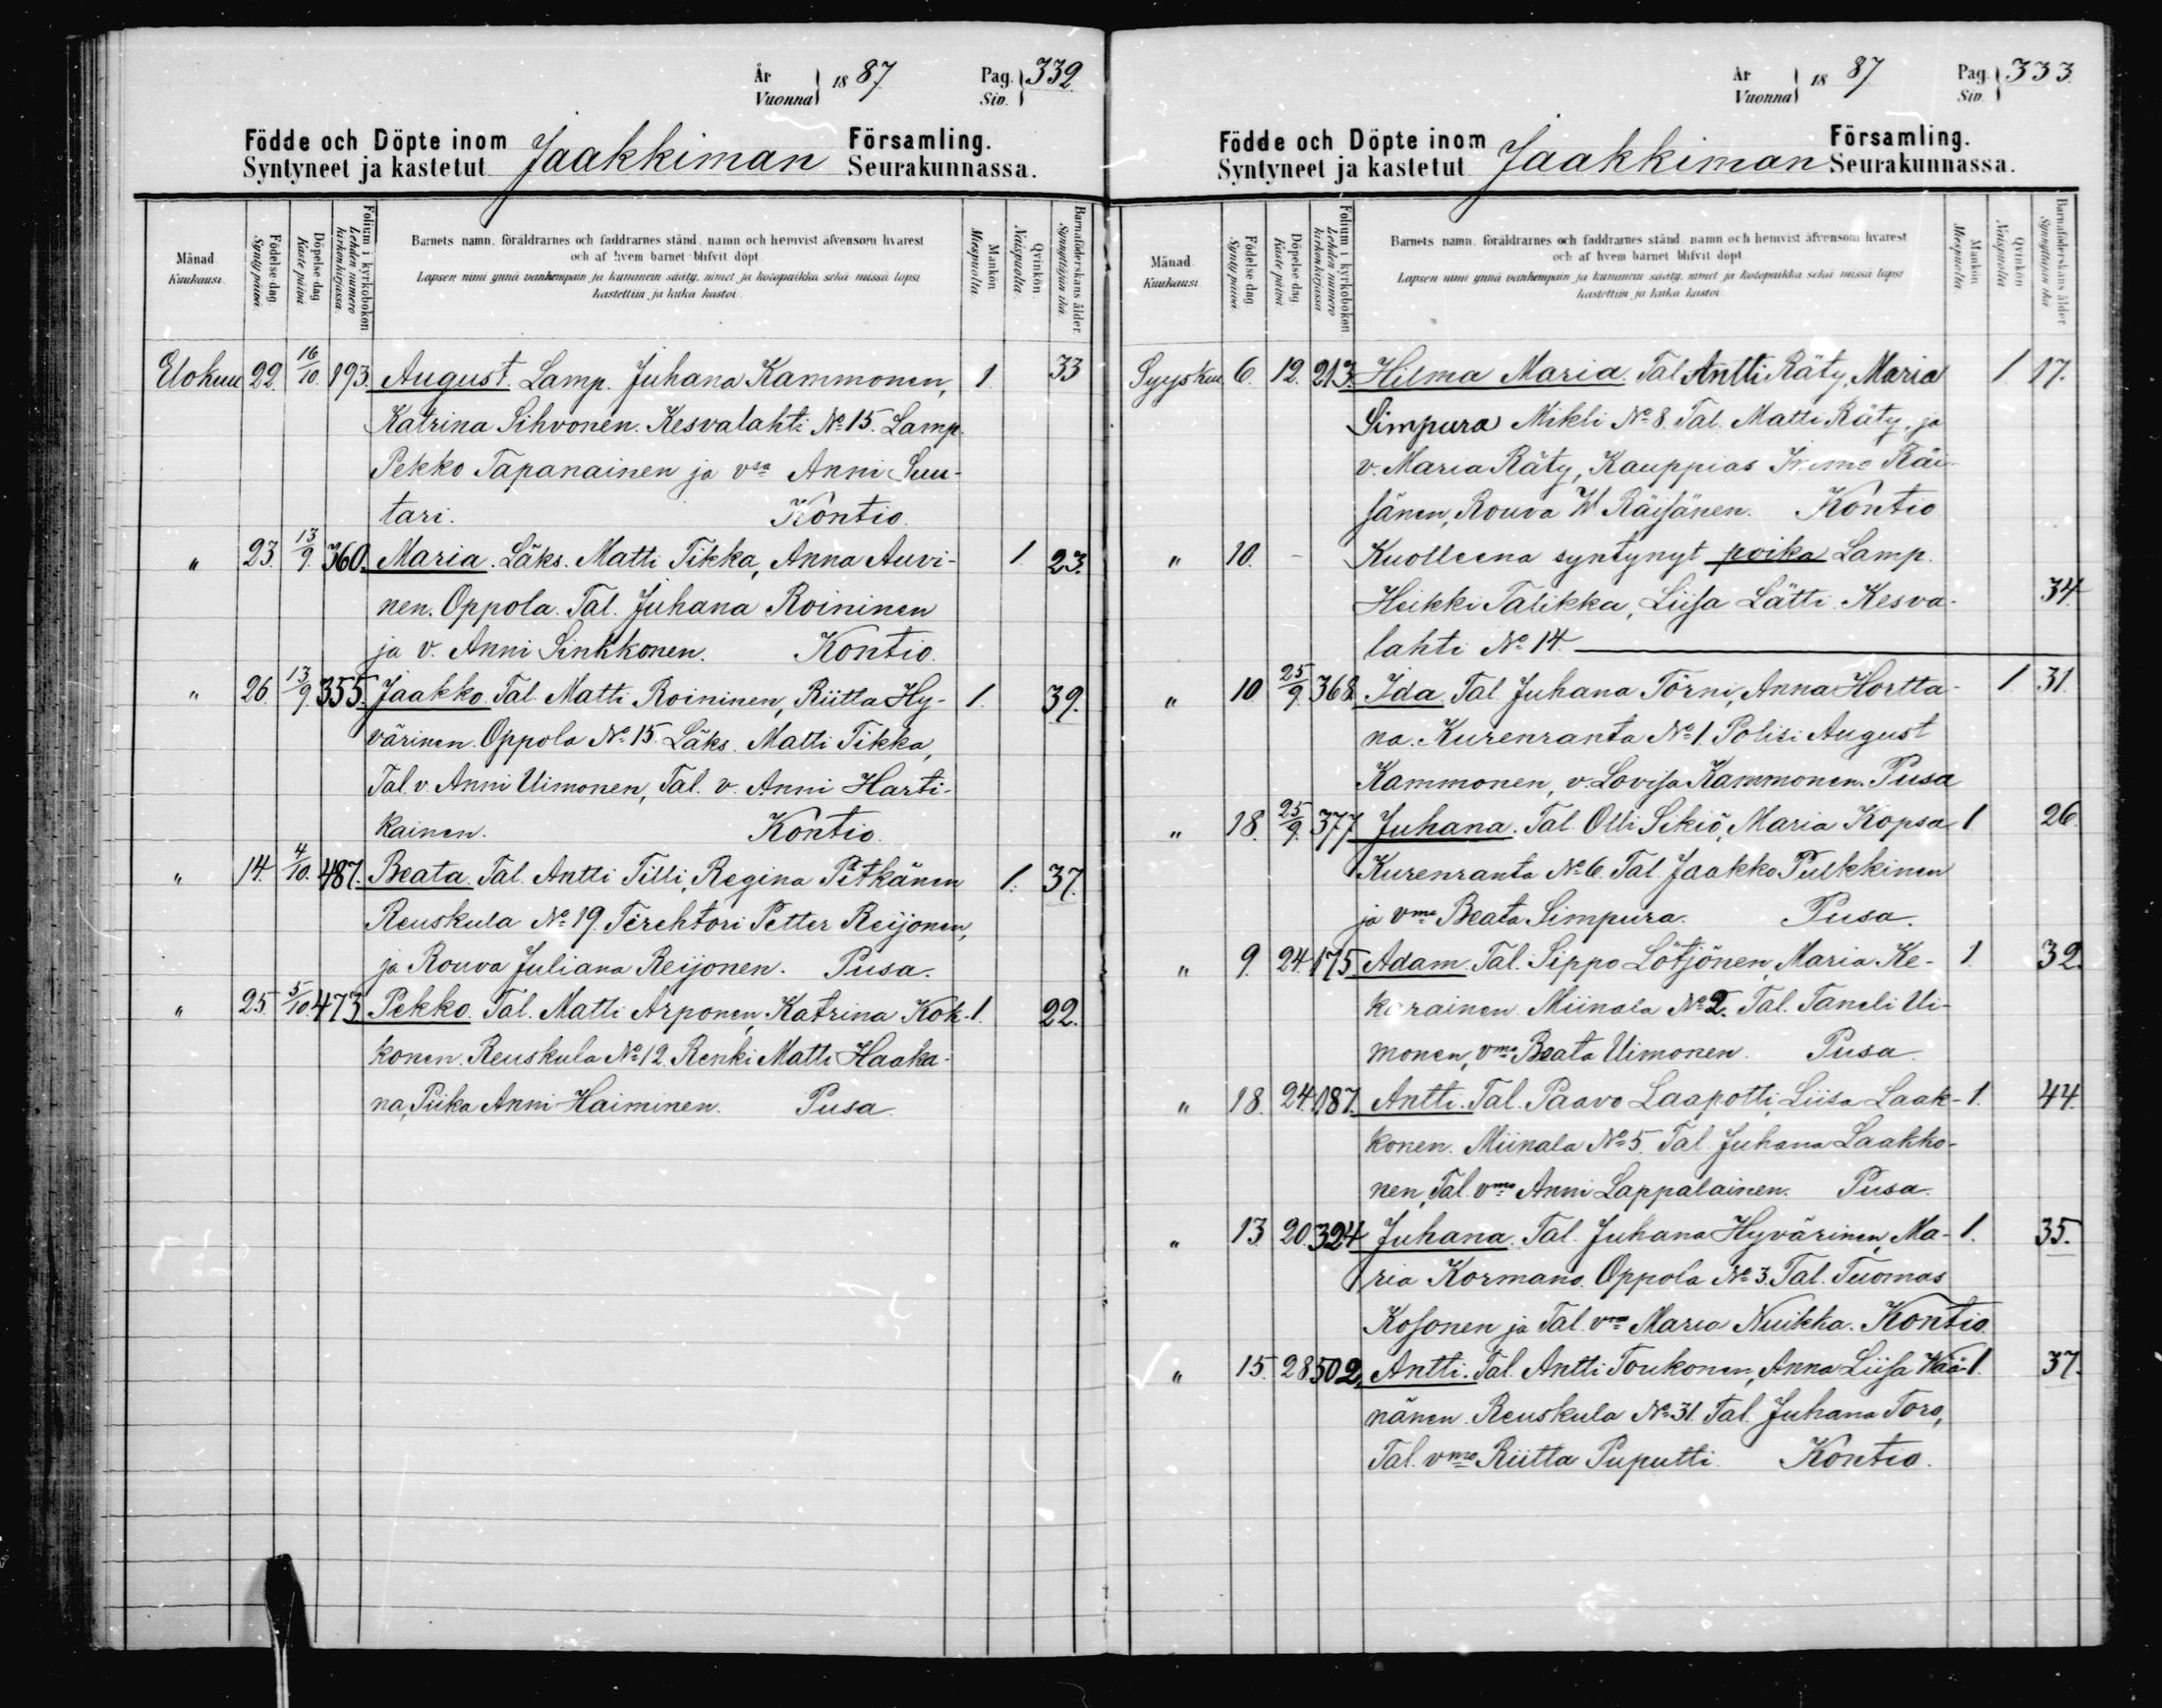 År
Vuonna } 1887. Pag.
Siv. } 332.
Födde och Döpte inom
Syntyneet ja kastetut Jaakkiman Församling.
Seurakunnassa.
Månad
Kuukausi.
Födelse dag
Synty päivä.
Döpelse dag
Kaste päivä
Folium i kyrkoboken
Lehden numero
kirkonkirjassa.
Barnets namn, föräldrarnes och faddrarnes stånd, namn och hemvist äfvensom hvarest
och af hvem barnet blifvit döpt.
Lapsen nimi ynnä vanhempain ja kummein sääty, nimet ja kotopaikka sekä missä lapsi
kastettiin ja kuka kastoi.
Mankön
Miespuolta.
Qvinkön.
Naispuolta.
Barnaföderskans ålder.
Synnyttäjän ikä.
Elokuu 22. 16/10. 193. August. Lamp. Juhana Kammonen, 1. 33
Katrina Sihvonen. Kesvalahti No 15. Lamp.
Pekko Tapanainen ja vsa Anni Suu-
tari. Kontio.
" 23. 13/9. 360. Maria. Läks. Matti Tikka, Anna Auvi- 1. 23.
nen. Oppola. Tal. Juhana Roininen
ja v. Anni Sinkkonen. Kontio.
" 26. 13/9. 355. Jaakko. Tal. Matti Roininen, Riitta Hy- 1. 39.
värinen. Oppola No 15. Läks. Matti Tikka,
Tal. v. Anni Uimonen, Tal. v. Anni Harti-
kainen. Kontio.
" 14. 4/10. 487. Beata. Tal. Antti Tilli, Regina Pitkänen 1. 37.
Reuskula No 19. Tirehtöri Petter Reijonen,
ja Rouva Juliana Reijonen. Pusa.
" 25. 5/10. 473. Pekko. Tal. Matti Arponen, Katrina Kok- 1. 22.
konen. Reuskula No 12. Renki Matti Haaka-
na, Piika Anni Haiminen. Pusa.
År
Vuonna } 1887 Pag.
Siv. } 333.
Födde och Döpte inom
Syntyneet ja kastetut Jaakkiman Församling.
Seurakunnassa.
Månad
Kuukausi.
Födelse dag
Synty päivä.
Döpelse dag
Kaste päivä
Folium i kyrkoboken
Lehden numero
kirkonkirjassa
Barnets namn, föräldrarnes och faddrarnes stånd, namn och hemvist äfvensom hvarest
och af hvem barnet blifvit döpt
Lapsen nimi ynnä vanhempain ja kummein sääty, nimet ja kotopaikka sekä missä lapsi
kastettiin ja kuka kastoi
Mankön
Miespuolta.
Qvinkön
Naispuolta
Barnaföderskans ålder
Synnyttäjän ikä
Syysku 6. 12. 213. Hilma Maria. Tal. Antti Räty, Maria 1 17.
Simpura Mikli No 8. Tal. Matti Räty, ja
v. Maria Räty, Kauppias Räi-
sänen, Rouva W Räisänen. Kontio
" 10. - Kuolleena syntynyt poika Lamp.
Heikki Talikka, Liisa Lätti. Kesva- 34.
lahti No 14.
" 10 25/9. 368 Ida. Tal. Juhana Törni, Anna Hortta- 1. 31.
na. Kurenranta No 1. Polisi August
Kammonen, v. Lovisa Kammonen. Pusa
" 18. 25/9. 377 Juhana. Tal. Olli Sikiö, Maria Kopsa 1 26.
Kurenranta No 6. Tal. Jaakko Pulkkinen
ja vmo Beata Simpura. Pusa.
" 9. 24. 175. Adam. Tal. Sippo Lötjönen, Maria Ke- 1. 32.
karainen Miinala No 2. Tal. Taneli Ui-
monen, vmo Beata Uimonen. Pusa.
" 18. 24. 187. Antti. Tal. Paavo Laapotti, Liisa Laak- 1. 44.
konen. Miinala No 5. Tal. Juhana Laakko-
nen, Tal. vmo Anni Lappalainen. Pusa.
" 13. 20. 324 Juhana. Tal. Juhana Hyvärinen, Ma- 1. 35.
ria Kormano. Oppola No 3. Tal. Tuomas
Kosonen ja Tal. vmo Maria Nuikka. Kontio.
" 15. 28 502. Antti. Tal. Antti Toukonen, Anna Liisa Vää- 1. 37.
nänen. Reuskula No 31. Tal. Juhana Toro,
Tal. vmo Riitta Puputti. Kontio.